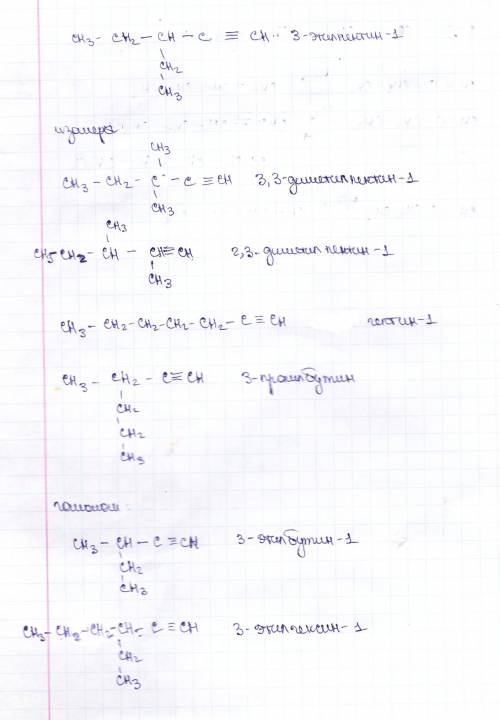 CH₃ - CH₂ - CH - C ≡ CH 3-этилпентин-1
CH₂
CH₃
изомеры:
CH₃
CH₃ - CH₂ - C - C ≡ CH 3,3-диметилпентин-1
CH₃
CH₃
CH₃ CH₂ - CH - CH≡CH 2,3-диметил пентин-1
CH₃
CH₃ - CH₂-CH₂-CH₂-CH₂-C≡CH гептин-1
CH₃ - CH₂ - C≡CH 3-пропилбутин
CH₂
CH₂
CH₃
гомологи:
CH₃ - CH - C ≡CH 3-этилбутин-1
CH₂
CH₃
CH₃-CH₂-CH₂-CH-C≡CH 3-этилгексин-1
CH₂
CH₃